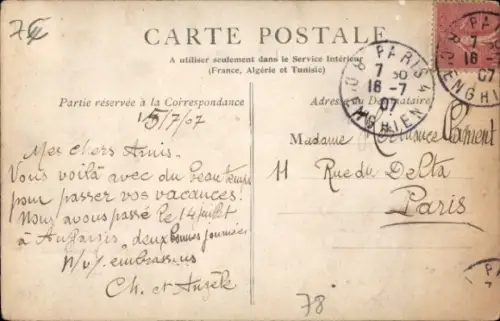 75
CARTE POSTALE
A utiliser seulement dans le Service Intérieur
(France, Algérie et Tunisie)
Partie réservée à la Correspondance
Adresse du Destinataire
15/7/07
Mes chers Amis.
Vous voilà avec du beau temps
pour passer vos vacances!
Nous avons passé le 14 juillet
à deux bonnes journées
N/v/ embrassons
Ch. et Angèle
Madame Clément
11 Rue du Delta
Paris
78
PARIS 4
7 30
16-7
07
R. D'ENGHIEN
PA
7
16
07
R. D'ENGHIEN
PA
7